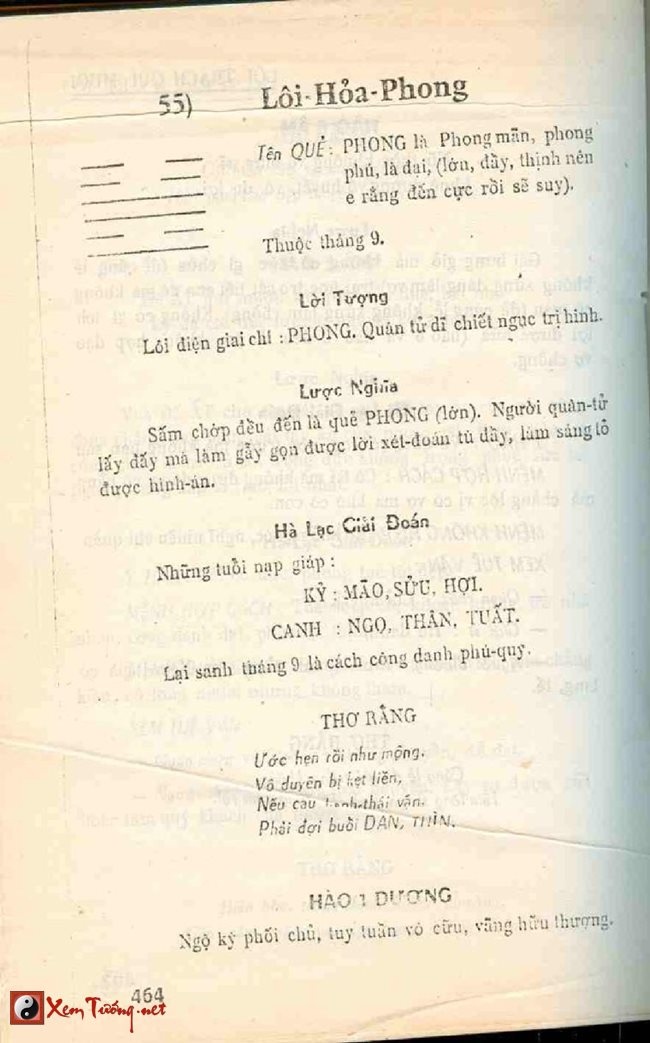 55) Lôi-Hỏa-Phong
Tên QUẺ: PHONG là Phong mãn, phong
phú, là đại, (lớn, đầy, thịnh nên
e rằng đến cực rồi sẽ suy).
Thuộc tháng 9.
Lời Tượng
Lôi điện giai chí : PHONG. Quân tử dĩ chiết ngục trị hình.
Lược Nghĩa
Sấm chớp đều đến là quẻ PHONG (lớn). Người quân-tử
lấy đấy mà làm gẫy gọn được lời xét-đoán tù đầy, làm sáng tỏ
được hình-án.
Hà Lạc Giải Đoán
Những tuổi nạp giáp :
KỶ : MÃO, SỬU, HỢI.
CANH : NGỌ, THÂN, TUẤT.
Lại sanh tháng 9 là cách công danh phú-quý.
THƠ RẰNG
Ước hẹn rồi như mộng.
Vô duyên bị kẹt liền,
Nếu cầu hanh-thái vận.
Phải đợi buổi DẦN, THÌN.
HÀO 1 DƯƠNG
Ngộ kỳ phối chủ, tuy tuần vô cữu, vãng hữu thượng.
464
XemTướng.net